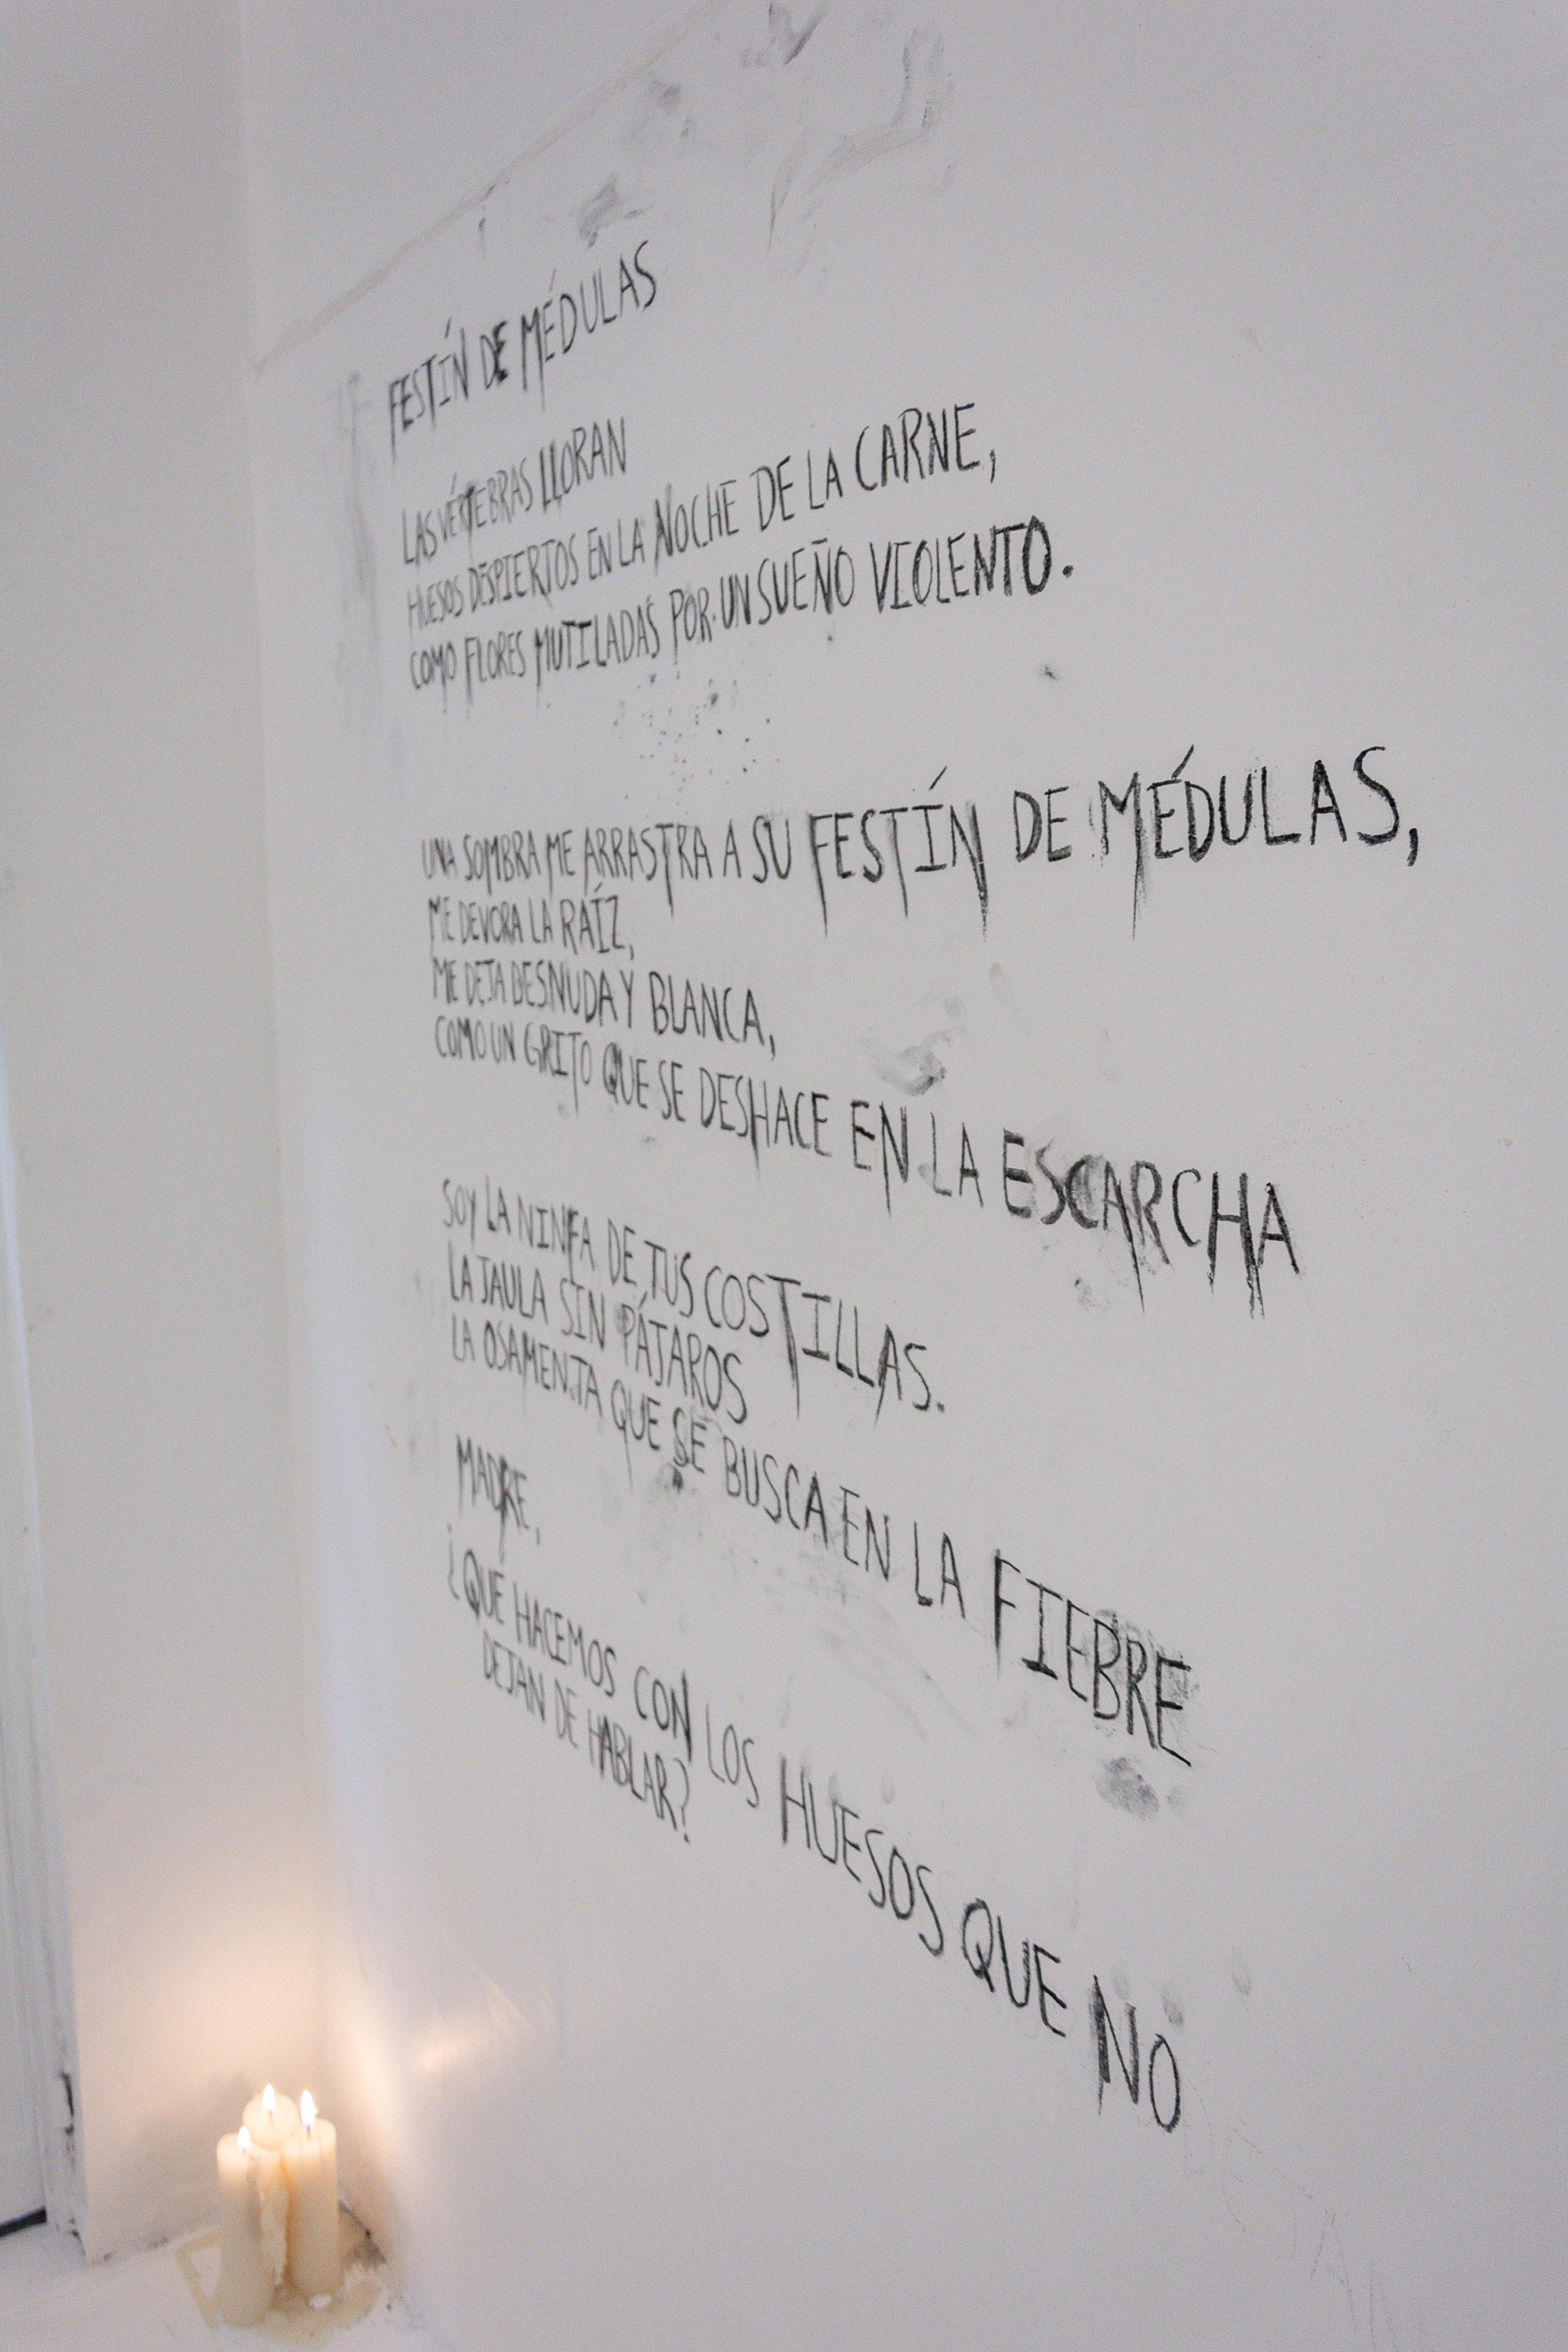 FESTÍN DE MÉDULAS
LAS VÉRTEBRAS LLORAN
HUESOS DESPIERTOS EN LA NOCHE DE LA CARNE,
COMO FLORES MUTILADAS POR UN SUEÑO VIOLENTO.
UNA SOMBRA ME ARRASTRA A SU FESTÍN DE MÉDULAS,
ME DEVORA LA RAÍZ,
ME DEJA DESNUDA Y BLANCA,
COMO UN GRITO QUE SE DESHACE EN LA ESCARCHA
SOY LA NINFA DE TUS COSTILLAS.
LA JAULA SIN PÁJAROS
LA OSAMENTA QUE SE BUSCA EN LA FIEBRE
MADRE,
¿QUÉ HACEMOS CON LOS HUESOS QUE NO
DEJAN DE HABLAR?